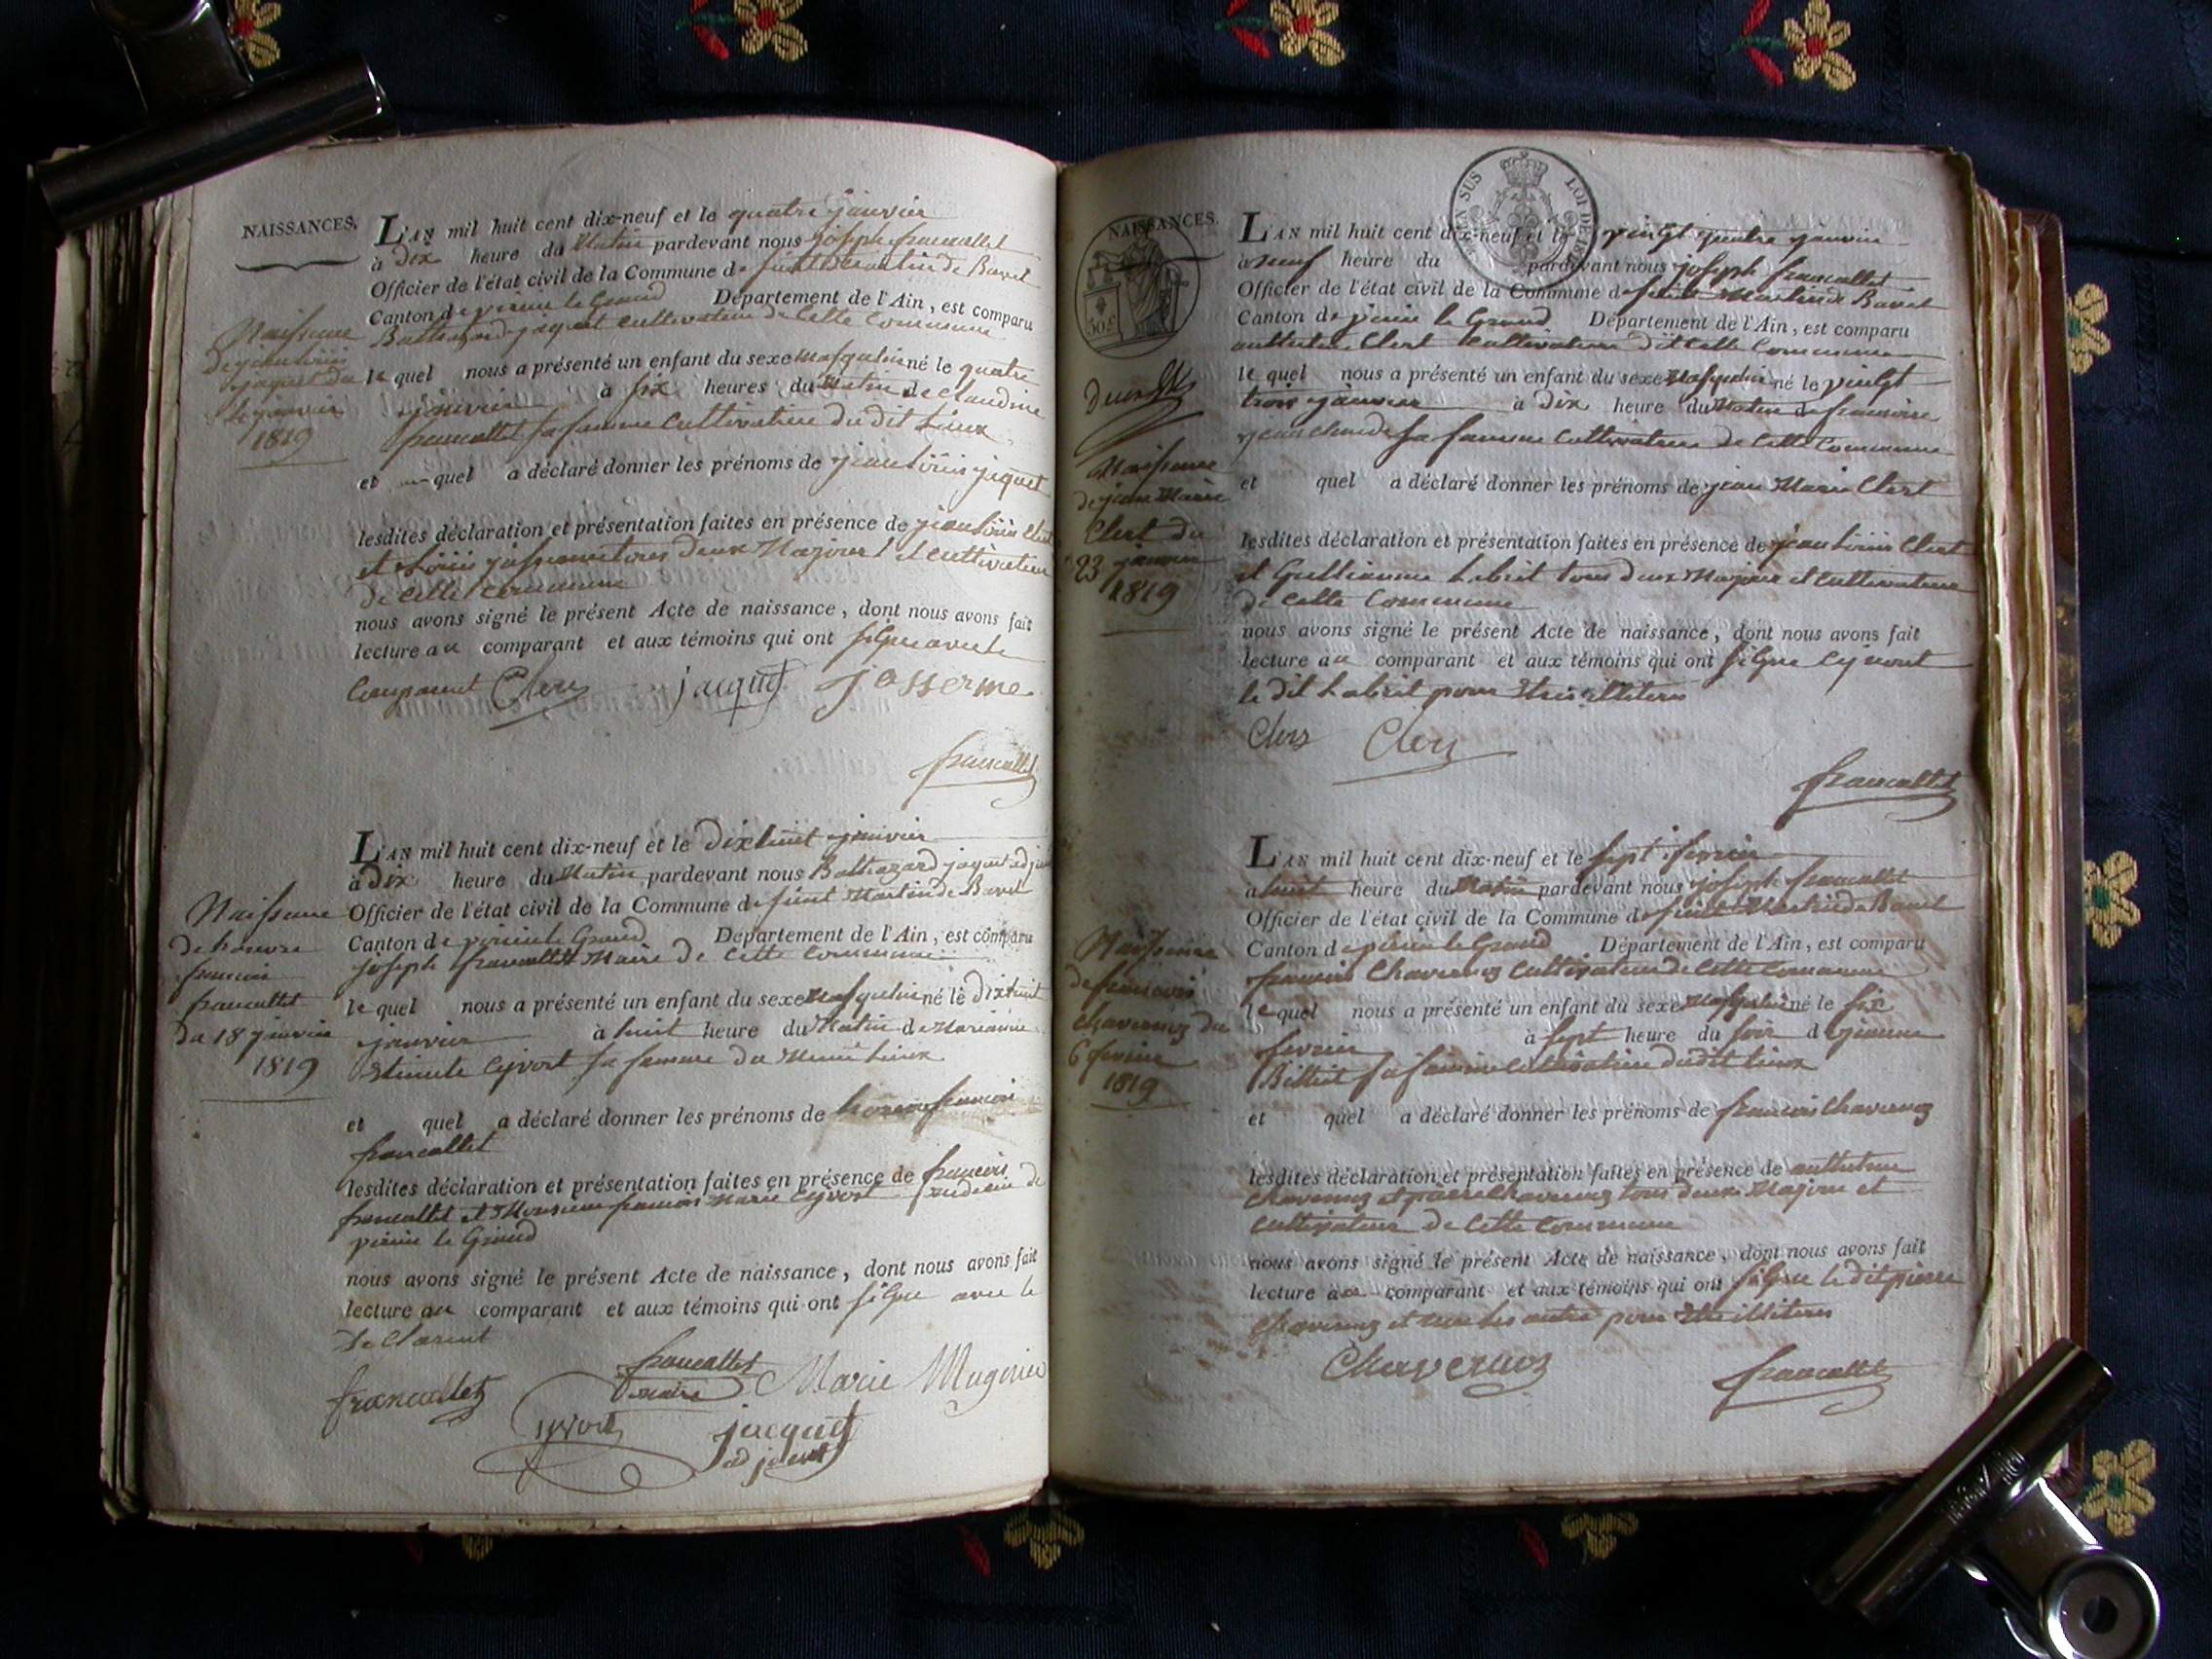 NAISSANCES.
Naissance
de jean Louis
jaquet du
4 janvier
1819
L'AN mil huit cent dix-neuf et le quatre janvier
à dix heure du Matin pardevant nous joseph francallet
Officier de l'état civil de la Commune de saint Martin de Bavel
Canton de virieu le Grand Département de l'Ain, est comparu
Balthazard jaquet cultivateur de cette Commune
le quel nous a présenté un enfant du sexe Masqulin né le quatre
janvier à six heures du Matin de Claudine
francallet sa femme Cultivatrice du dit Lieux
et quel a déclaré donner les prénoms de jean Louis jaquet
lesdites déclaration et présentation faites en présence de jean Louis Clert
et Louis tous deux Majeur et Cultivateur
de cette commune
nous avons signé le présent Acte de naissance, dont nous avons fait
lecture au comparant et aux témoins qui ont signe avec le
Comparant Clerc jacquet josserme
francallet
Naissance
de honore
francois
francallet
du 18 janvier
1819
L'AN mil huit cent dix-neuf et le dix huit janvier
à Dix heure du Matin pardevant nous Balthazard jaquet adjoint
Officier de l'état civil de la Commune de saint Martin de Bavel
Canton de virieu le Grand Département de l'Ain, est comparu
joseph francallet Maire de cette commune
le quel nous a présenté un enfant du sexe Masqulin né le dix huit
janvier à huit heure du Matin de Marianne
Cyvort sa femme du Meme Lieux
et quel a déclaré donner les prénoms de honore francois
francallet
lesdites déclaration et présentation faites en présence de francois
francallet et Monsieur francois Marie Cyvort medecin de
virieu le Grand
nous avons signé le présent Acte de naissance, dont nous avons fait
lecture au comparant et aux témoins qui ont signe avec le
declarent
francallet francallet maire Marie Mugnier
Cyvort jacquet
adjoint
NAISSANCES.
30 c
LOI DE
Naissance
de jean Marie
Clert du
23 janvier
1819
L'AN mil huit cent dix-neuf et le vingt quatre janvier
à neuf heure du pardevant nous joseph francallet
Officier de l'état civil de la Commune de saint Martin de Bavel
Canton de virieu le Grand Département de l'Ain, est comparu
anthelme Clert Cultivateur de cette Commune
le quel nous a présenté un enfant du sexe Masqulin né le vingt
trois janvier à dix heure du Matin de francoise
sa femme Cultivatrice de cette Commune
et quel a déclaré donner les prénoms de jean Marie Clert
lesdites déclaration et présentation faites en présence de jean Louis Clert
et Gulliaume Labrit tous deux Majeur et Cultivateur
de cette Commune
nous avons signé le présent Acte de naissance, dont nous avons fait
lecture au comparant et aux témoins qui ont signe Cy
le dit Labrit pour illiteres
Clerc Clerc
francallet
Naissance
de francois
Chavernoz du
6 fevrier
1819
L'AN mil huit cent dix-neuf et le sept fevrier
à huit heure du Matin pardevant nous joseph francallet
Officier de l'état civil de la Commune de saint Martin de Bavel
Canton de virieu le Grand Département de l'Ain, est comparu
francois Chavernoz Cultivateur de cette Commune
le quel nous a présenté un enfant du sexe Masqulin né le six
fevrier à sept heure du soir de jeanne
Billiet sa femme Cultivatrice du dit Lieux
et quel a déclaré donner les prénoms de francois Chavernoz
lesdites déclaration et présentation faites en présence de anthelme
Chavernoz et pierre Chavernoz tous deux Majeur et
Cultivateur de cette Commune
nous avons signé le présent Acte de naissance, dont nous avons fait
lecture au comparant et aux témoins qui ont signe le dit pierre
Chavernoz et non les autre pour etre illiteres
Chavernoz francallet